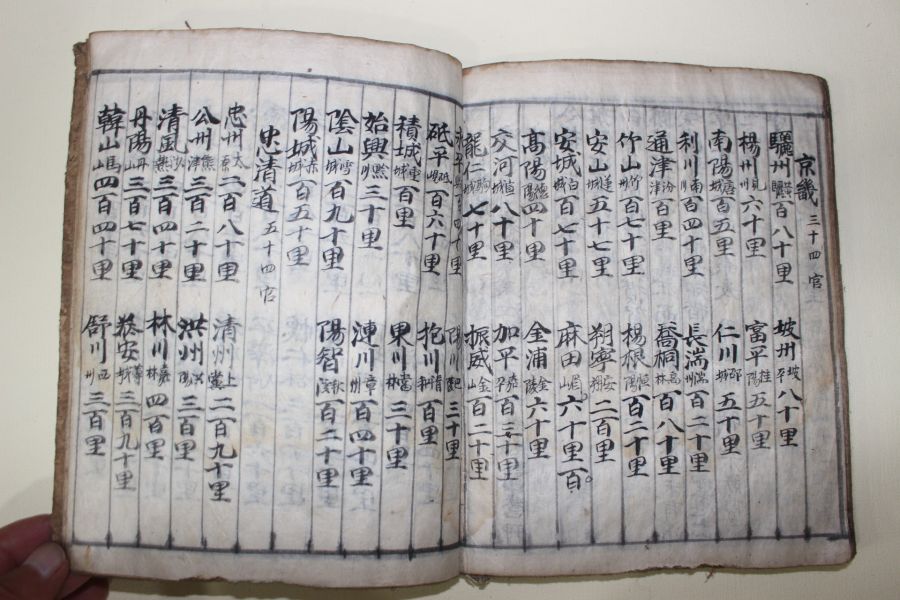 京畿 三十四官
驪州 百八十里 坡州 坡平 八十里
楊州 見州 六十里 富平 桂陽 五十里
南陽 唐城 百五里 仁川 邵城 五十里
利川 南川 百四十里 長湍 湍州 百二十里
通津 分津 百里 喬桐 高林 百八十里
竹山 竹州 百七十里 楊根 恒陽 百二十里
安山 蓮城 五十七里 朔寧 二百里
安城 白城 百七十里 麻田 六十里百
高陽 德陽 四十里 金浦 金陵 六十里
交河 宣城 八十里 加平 嘉平 百三十里
龍仁 駒城 七十里 振威 金山 百二十里
四十里 三十里
砥平 砥峴 百六十里 抱川 清州 百里
積城 重城 百里 果川 富林 三十里
始興 黔州 三十里 漣川 章州 百四十里
陰山 雪城 百九十里 陽智 秋溪 百二十里
陽城 赤城 百五十里
忠清道 五十四官
忠州 二百八十里 清州 上黨 二百九十里
公州 熊津 三百二十里 洪州 洪陽 三百里
清風 沙熱 三百四十里 林川 嘉林 四百里
丹陽 丹山 三百七十里 三百九十里
韓山 馬山 四百四十里 舒川 西州 三百里